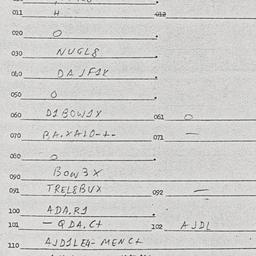 011 H 012
020 O
030 NUGL8
040 DAJF1X
050 O
060 D1BOW1X 061 O
070 B.A.XA10-+- 071 —
080 O
090 BOW3X
091 TREL8BUX 092 —
100 ADA.R1
101 — QDA.C+ 102 AJDL
110 AJD1LE4-MENC+